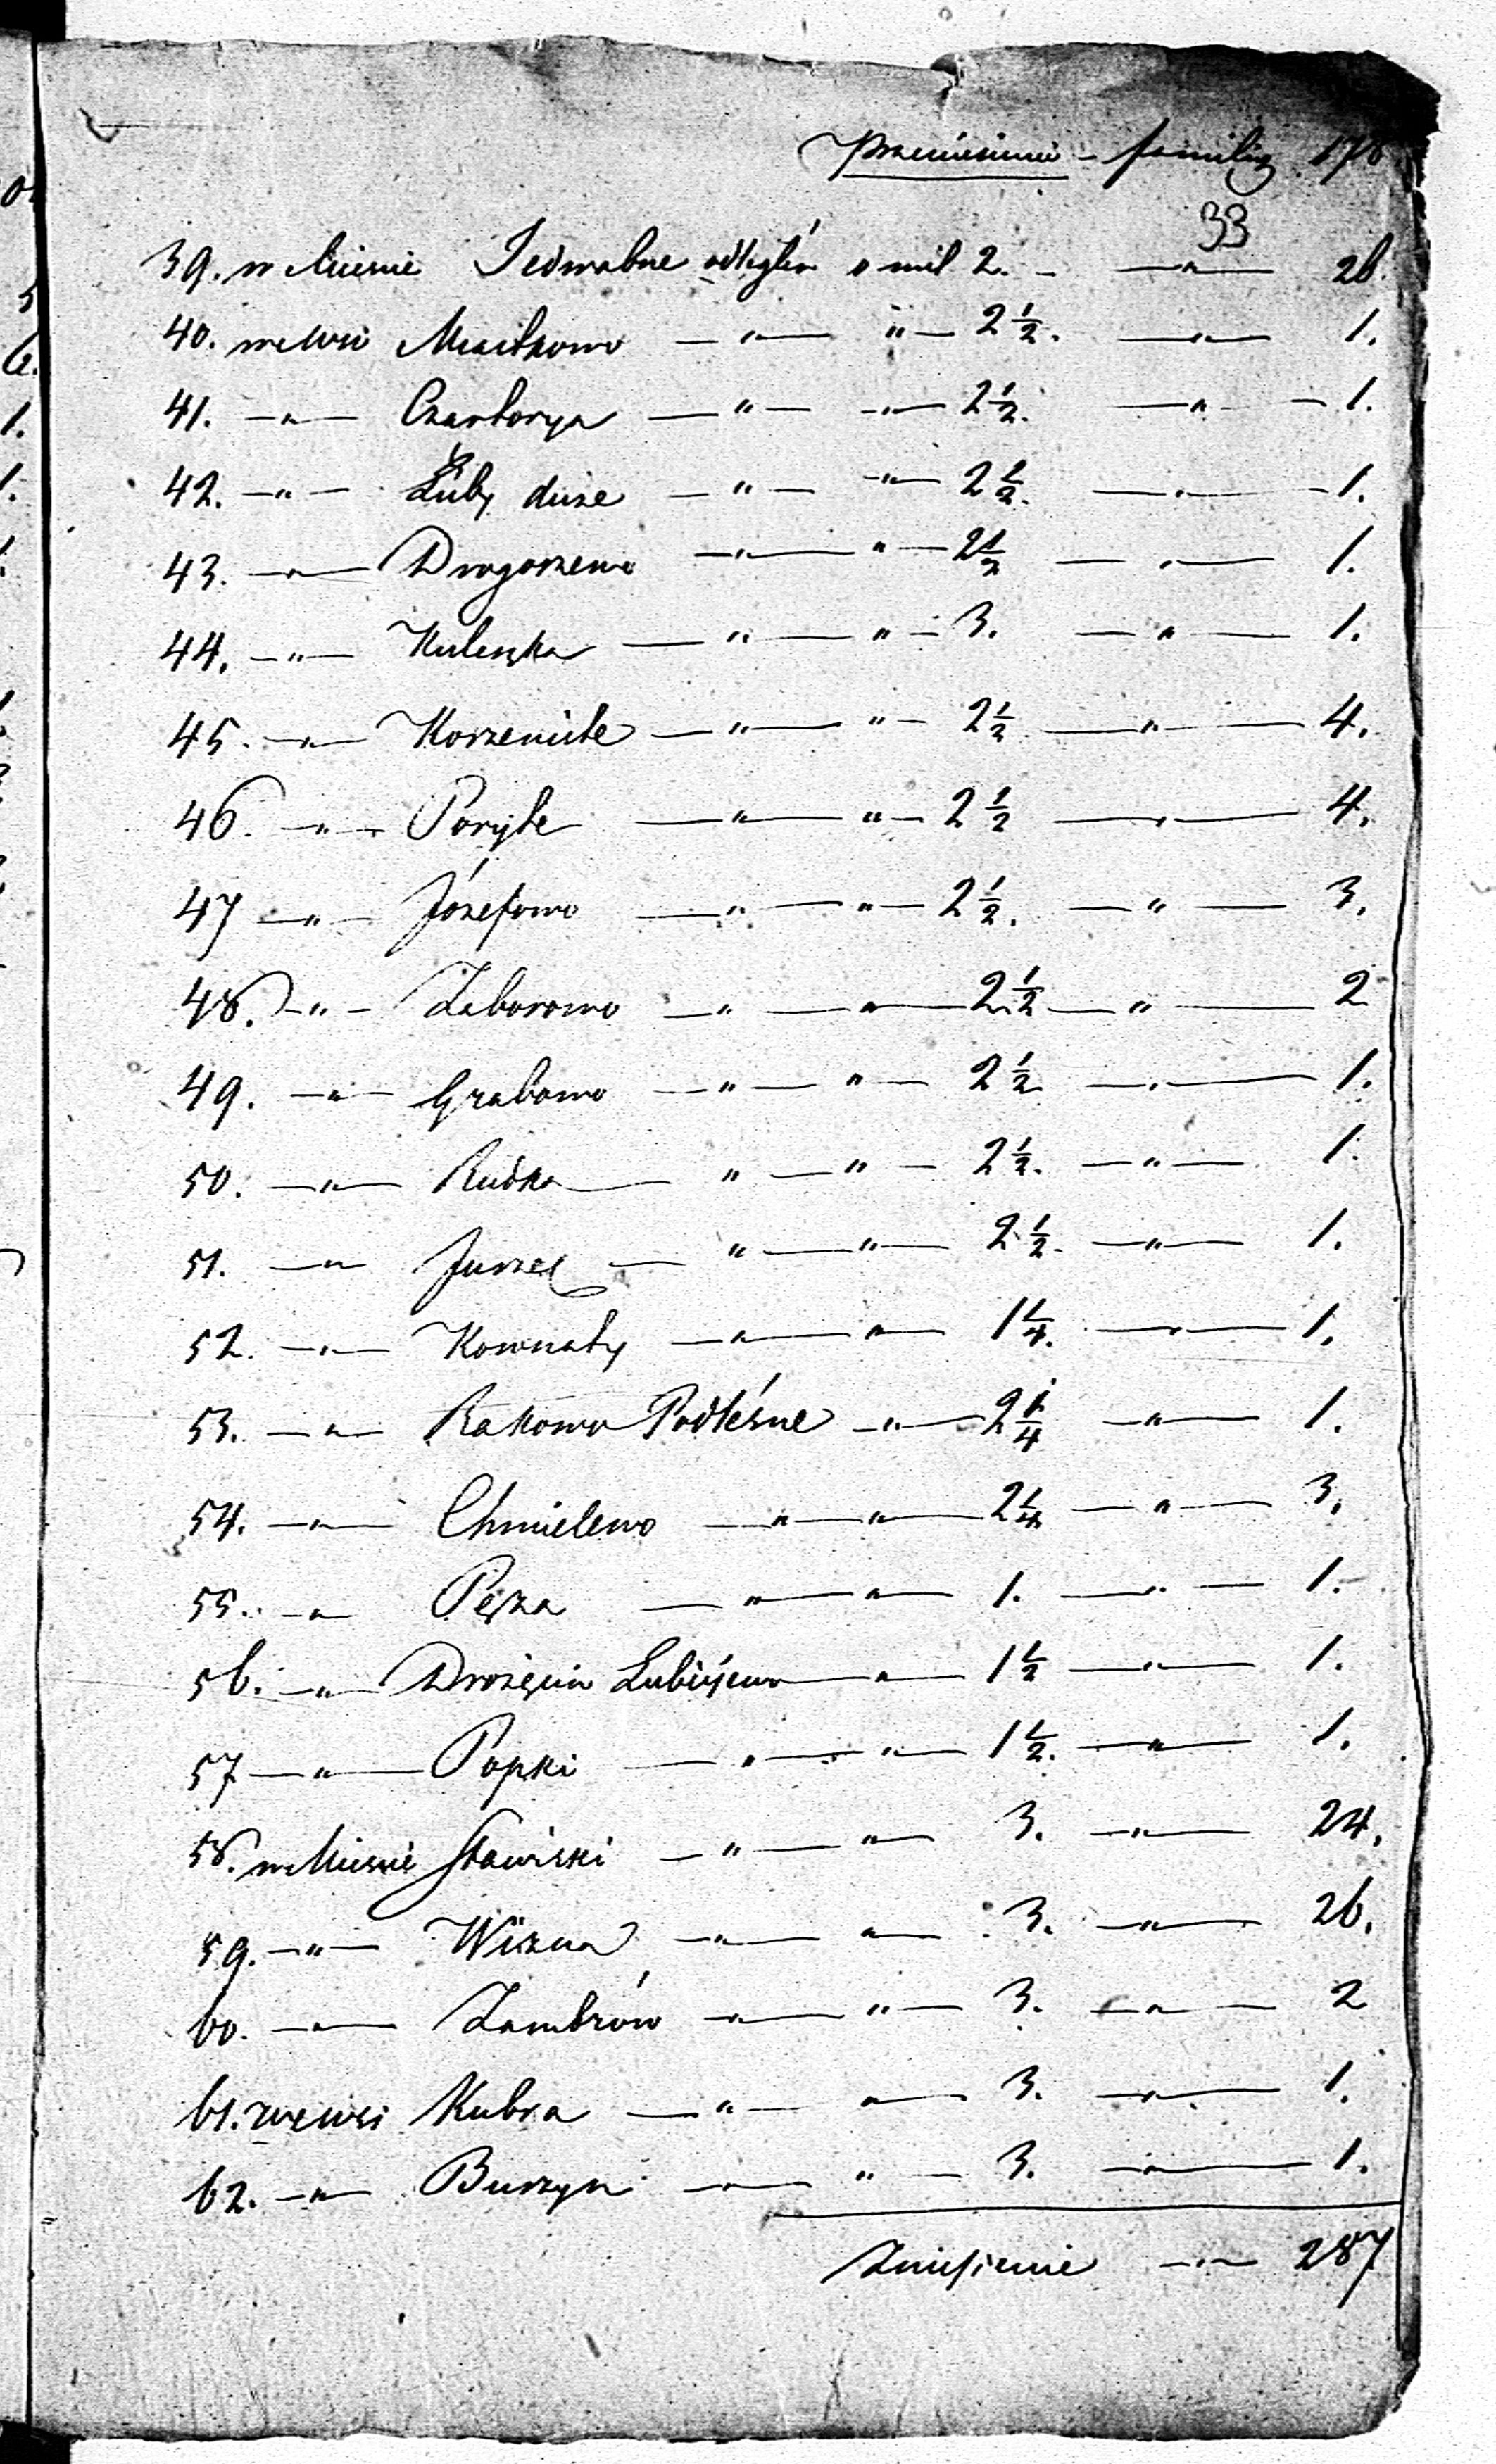 Przeniesienie - familiy 178
33
39. w Mieście Jedwabne odległém o mil 2. - — " — 26.
40. we Wsi Mściskowo — " — " — 2 1/2. — " — 1.
41. — " — Czartorya — " — — " — 2 1/2. — " — 1.
42. — " — Łuby duże — " — — " — 2 1/2. — " — 1.
43. — " — Drogoszewo — " — " — 2 1/2 — " — 1.
44. — " — Kuleszka — " — " — 3. — " — 1.
45. — " — Korzeniste — " — " — 2 1/2 — " — 4.
46. — " — Poryte — " — " — 2 1/2 — " — 4.
47 — " — Józefowo — " — " — 2 1/2. — " — 3.
48. — " — Zaborowo — " — " — 2 1/2 — " — 2
49. — " — Grabowo — " — " — 2 1/2 — " — 1.
50. — " — Rudka — " — " — 2 1/2. — " — 1.
51. — " — Jurzec — " — " — 2 1/2. — " — 1.
52. — " — Kownaty — " — " — 1 1/4. — " — 1.
53. — " — Rakowo Podleśne — " — 2 1/4 — " — 1.
54. — " — Chmielewo — " — " — 2 1/4 — " — 3.
55. — " — Pęza — " — " — 1. — " — 1.
56. — " — Drożęcin Lubiejewo — " — 1 1/2 — " — 1.
57 — " — Popki — " — " — 1 1/2. — " — 1.
58. w Mieście Stawiski — " — " — 3. — " — 24.
59. — " — Wizna — " — " — 3. — " — 26.
60. — " — Zambrów — " — " — 3. — " — 2
61. we wsi Kubra — " — " — 3. — " — 1.
62. — " — Burzyn — " — " — 3. — " — 1.
Zniesienie — " — 287